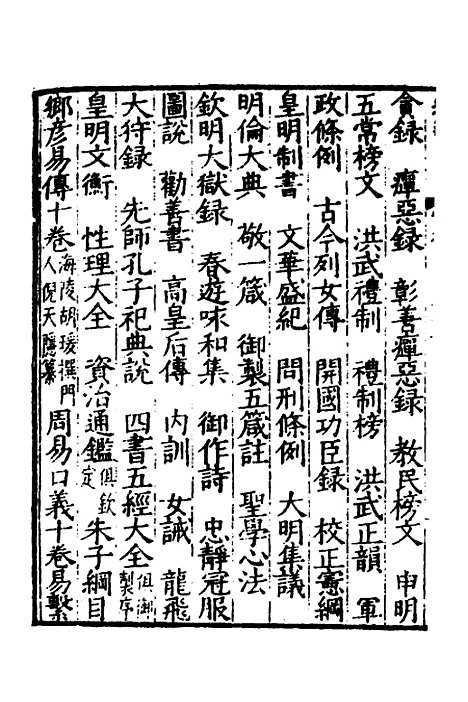 貪録　瘅惡録　彰善瘅惡録　教民榜文　申明
五常榜文　洪武禮制　禮制榜　洪武正韻　軍
政條例　古今列女傳　開國功臣録　校正憲綱
皇明制書　文華盛紀　問刑條例　大明集議
明倫大典　敬一箴　御製五箴註　聖學心法
欽明大獄録　春遊咏和集　御作詩　忠靜冠服
圖說　勸善書　高皇后傳　内訓　女誡　龍飛
大狩録　先師孔子祀典說　四書五經大全俱御製序
皇明文衡　性理大全　資治通鑑俱欽定　朱子綱目
鄉彦易傳十卷海陵胡瑗撰門人倪天隱纂　周易口義十卷易繫